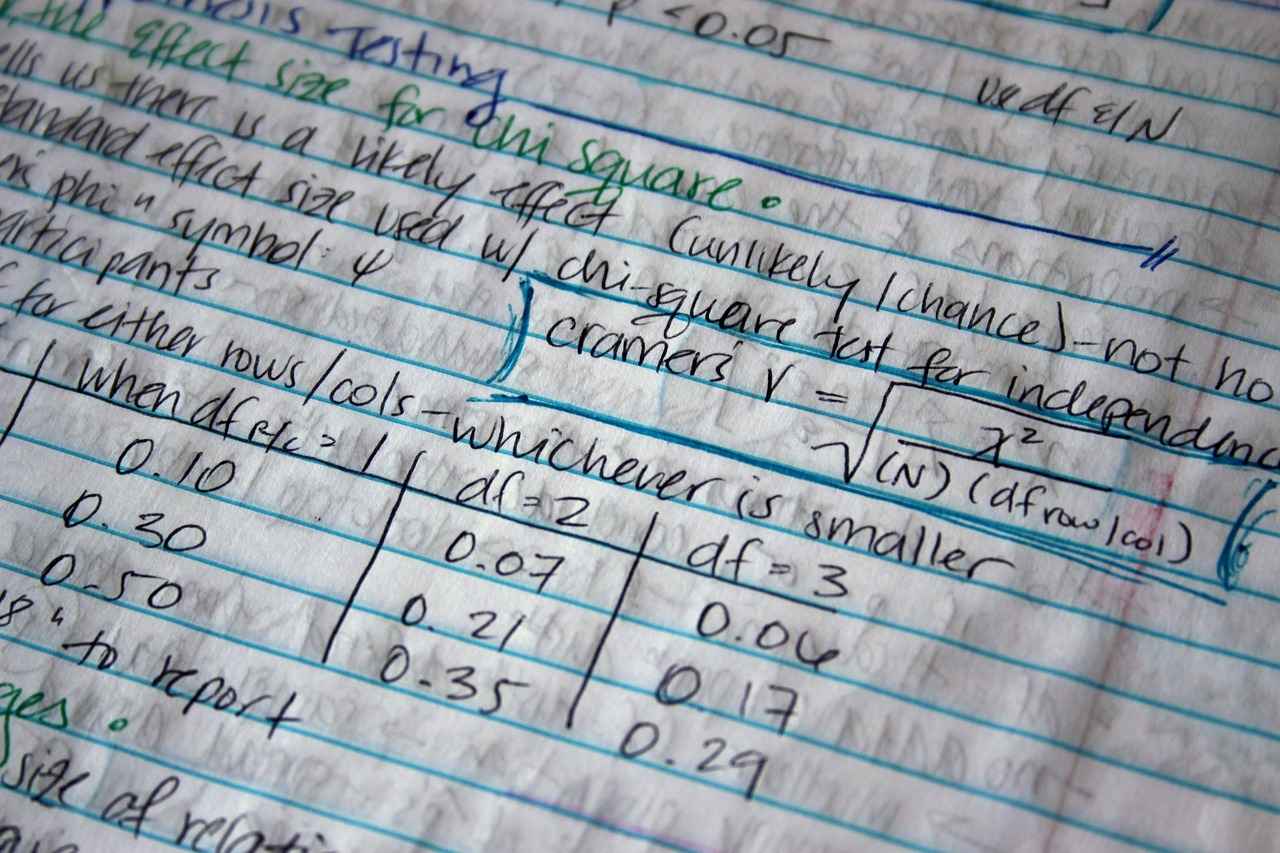 P < 0.05
Testing
use df &/N
the effect size for chi square.
us there is a likely effect (unlikely / chance) - not
effect size used w/ chi-square test for
phi" symbol: φ
cramers V = √ x² / (N) (df row/col)
for either rows/cols - whichever is smaller
when df R/C = 1 | df = 2 | df = 3
0.10 | 0.07 | 0.06
0.30 | 0.21 | 0.17
0.50 | 0.35 | 0.29
" to report
size of